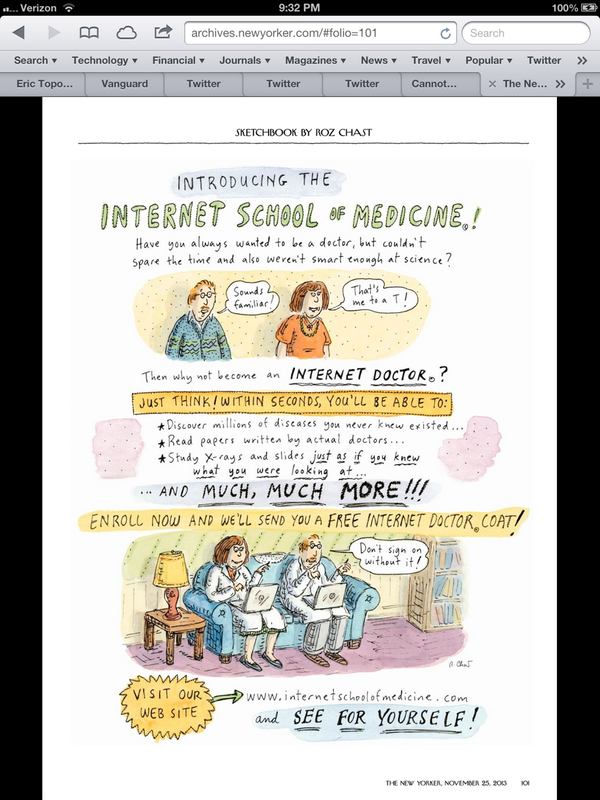 ... Verizon 9:32 PM 100%
archives.newyorker.com/#folio=101 Search
Search Technology Financial Journals Magazines News Travel Popular Twitter
Eric Topo... Vanguard Twitter Twitter Twitter Cannot... The Ne...
SKETCHBOOK BY ROZ CHAST
INTRODUCING THE
INTERNET SCHOOL OF MEDICINE®!
Have you always wanted to be a doctor, but couldn't
spare the time and also weren't smart enough at science?
Sounds
familiar!
That's
me to a T!
Then why not become an INTERNET DOCTOR®?
JUST THINK! WITHIN SECONDS, YOU'LL BE ABLE TO:
★Discover millions of diseases you never knew existed...
★Read papers written by actual doctors...
★Study X-rays and slides just as if you knew
what you were looking at...
... AND MUCH, MUCH MORE!!!
ENROLL NOW AND WE'LL SEND YOU A FREE INTERNET DOCTOR® COAT!
Don't sign on
without it!
R. Chast
VISIT OUR
WEB SITE
www.internetschoolofmedicine.com
and SEE FOR YOURSELF!
THE NEW YORKER, NOVEMBER 25, 2013 101